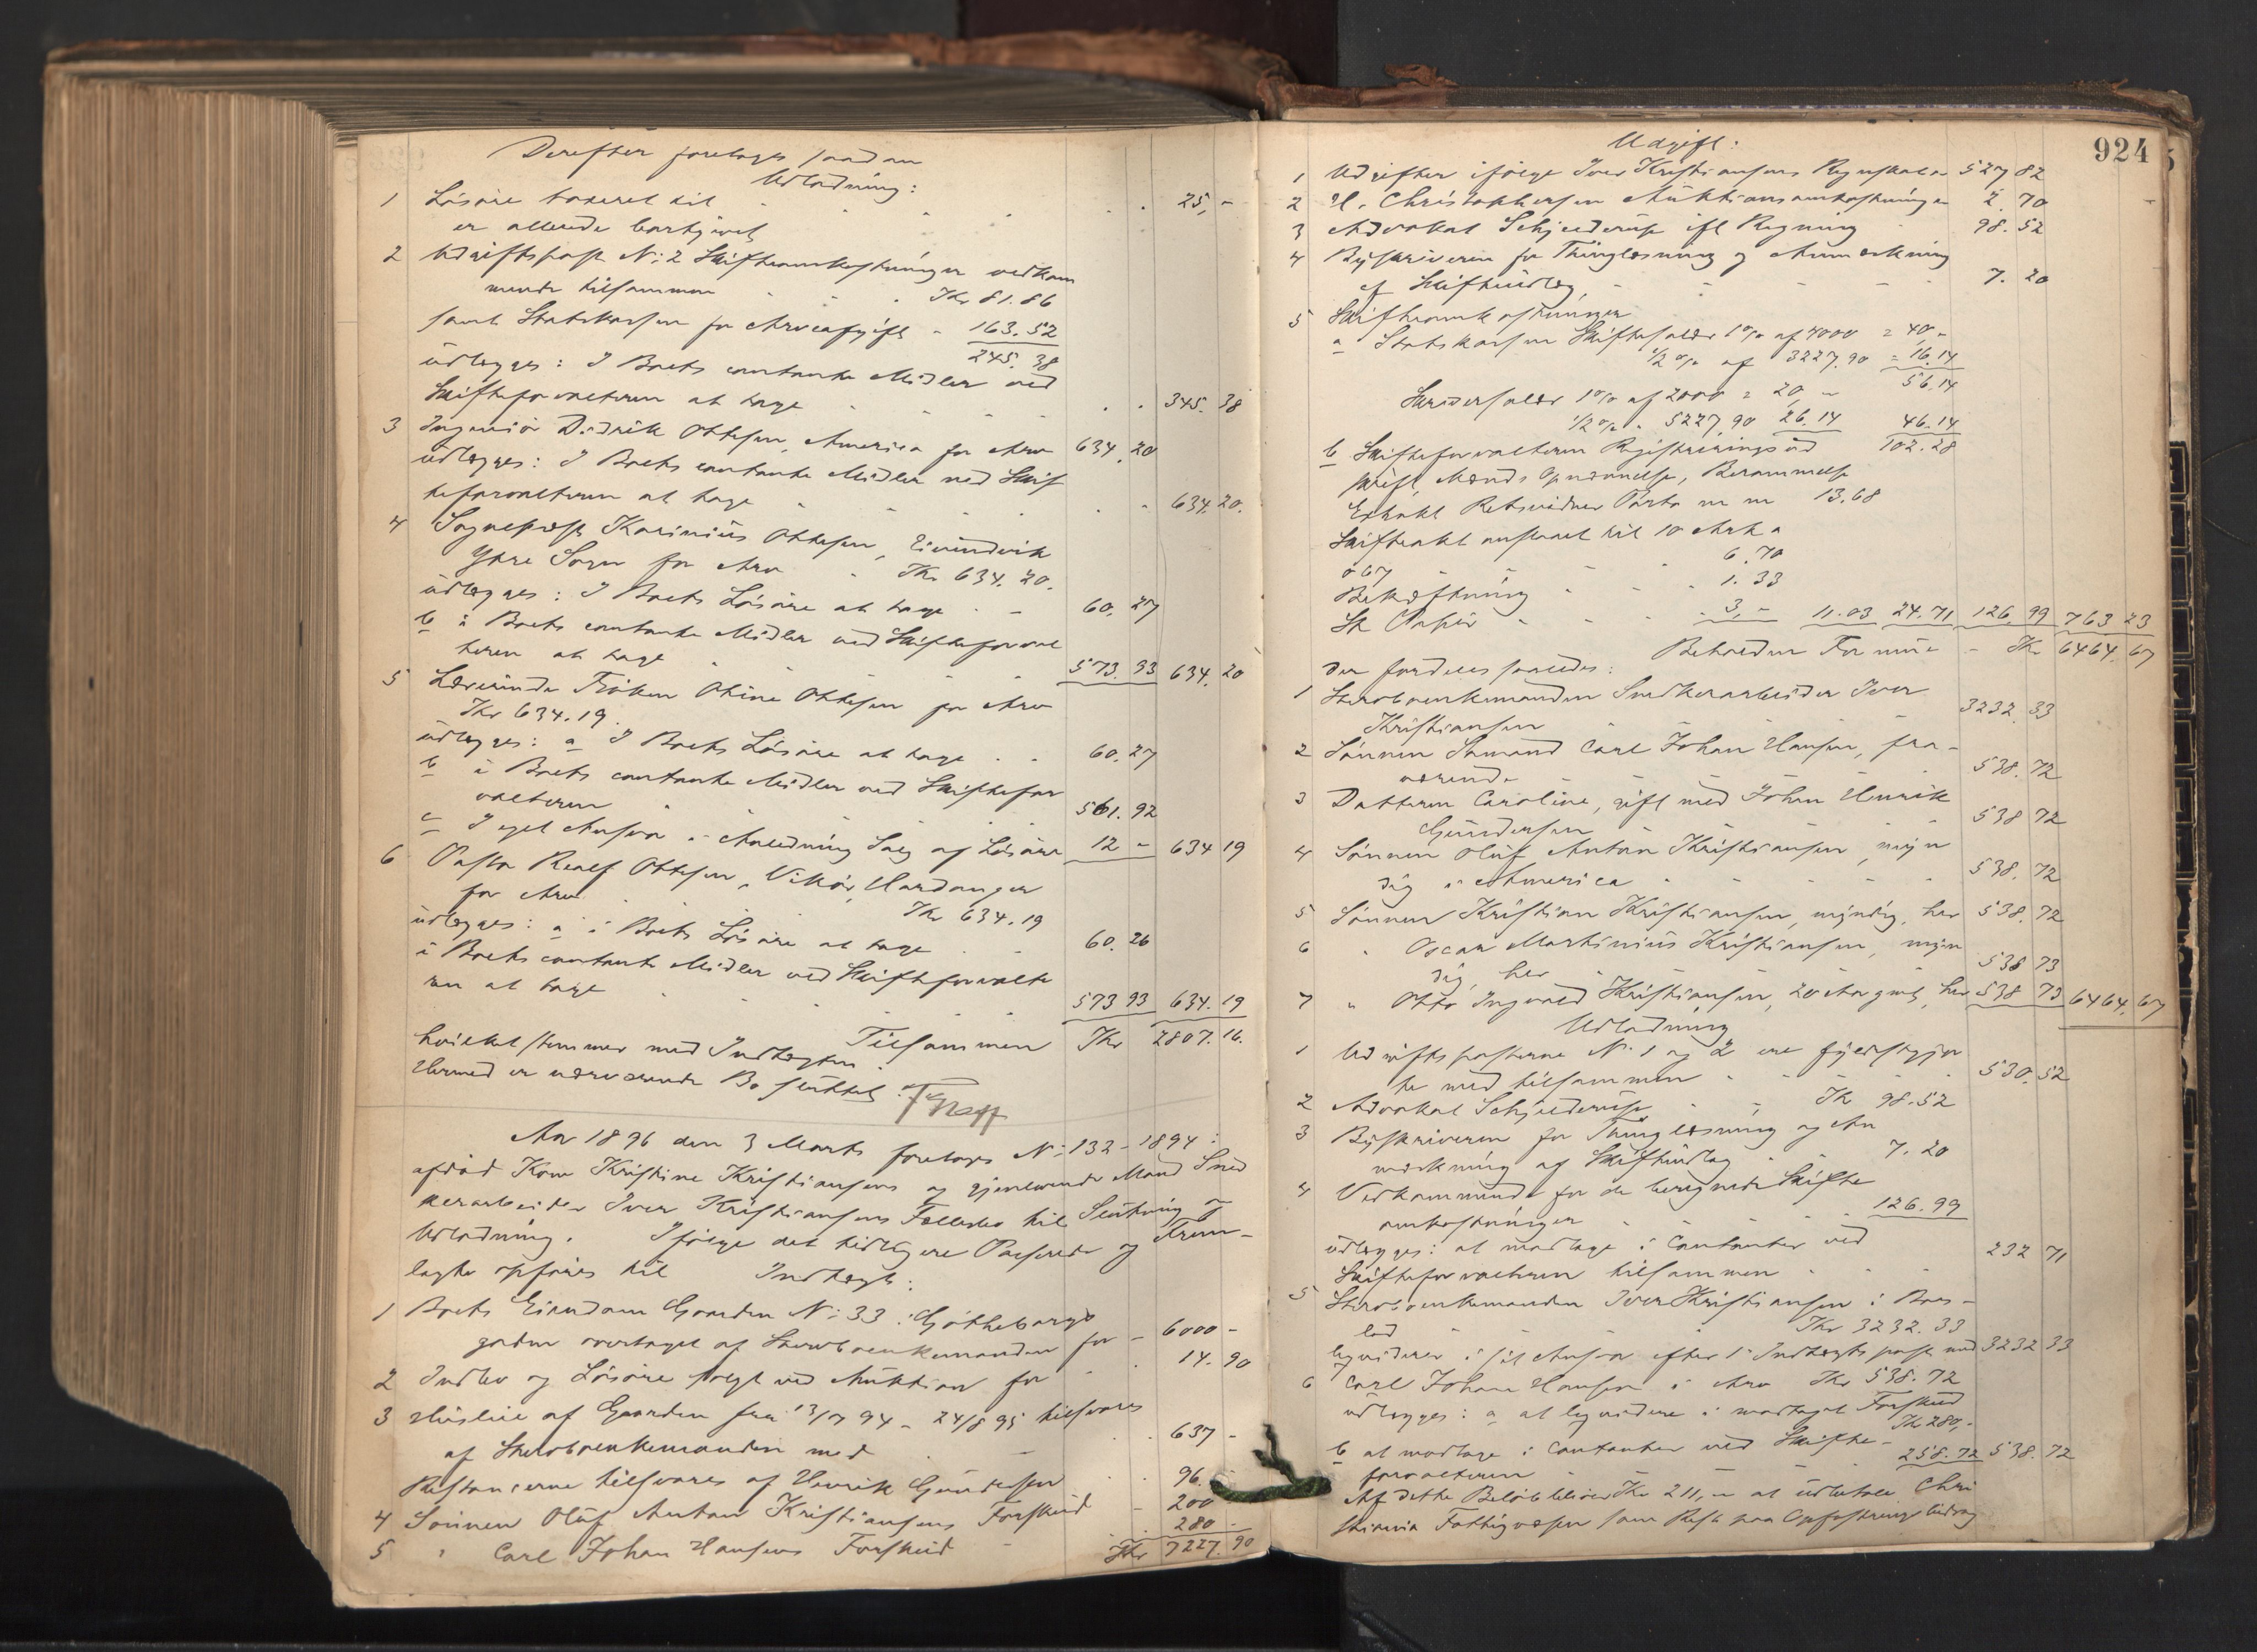 Derefter foretoges saadan
Udlodning:
1 Løsøre taxeret til 25,-
er allerede bortgivet
2 Udgiftspost N: 2 Skifteomkostninger vedkom
mende tilsammen Kr 81.86
samt Statskassen for Arveafgift - 163.52
245.38
udlægges: I Boets contante Midler ved
Skifteforvalteren at tage 345.38
3 Ingeniør Didrik Ottesen, America for Arv 634.20
udlægges: I Boets contante Midler ved Skif
teforvalteren at tage 634.20.
4 Sogneprest Karinius Ottesen, Eivindvik
Ytre Sogn for Arv Kr 634.20.
udlægges: I Boets Løsøre at tage 60.27
b i Boets contante Midler ved Skifteforval
teren at tage 573.93 634.20
5 Lærerinde Frøken Otine Ottesen for Arv
Kr 634.19.
udlægges: a I Boets Løsøre at tage 60.27
b i Boets contante Midler ved Skiftefor
valteren 561.92
c I eget Ansvar i Anledning Salg af Løsøre 12 - 634 19
6 Pastor Realf Ottesen, Vikør, Hardanger
for Arv Kr 634.19
udlægges: a i Boets Løsøre at tage 60.26
i Boets contante Midler ved Skifteforvalte
ren at tage 573 93 634.19
Tilsammen Kr 2807.16.
hvilket stemmer med Indtægten.
Hermed er nærværende Bo sluttet.
Aar 1896 den 3 Marts foretoges N: 132-1894:
afdød Kone Kristine Kristiansens og gjenlevende Mand Sned
kerarbeider Iver Kristiansens Fællesbo til Slutning og
Udlodning. Ifølge det tidligere Passerede og Frem-
lagte opføres til Indtægt:
1 Boets Eiendom Gaarden N: 33 i Gøtheborgs
gaden overtaget af Stervboenkemanden for - 6000 -
2 Indbo og Løsøre solgt ved Auktion for 14.90
3 Husleie af Gaarden fra 13/7 94 - 24/8 95 tilsvares
af Stervboenkemanden med 637 -
Restancerne tilsvares af Henrik Gundersen 96.
4 Sønnen Oluf Anton Kristiansens Forskud 200
5 " Carl Johan Hansens Forskud 280 -
Kr 7227.90
924
Udgift:
1 Udgifter ifølge Iver Kristiansens Regnskaber 527 82
2 H. Christophersen Auktionsomkostninger 2.70
3 Advokat Schjelderup ifl Regning 98.52
4 Byskriveren for Thinglæsning og Anmærkning
af Skifteudlæg 7.20
5 Skifteomkostninger
a Statskassen Skiftesalær 1% af 4000 = 40,-
1/2 % af 3227.90 = 16.14
56.14
Skriversalær 1% af 2000 = 20,-
1/2 % " 5227,90 26.14 46.14
102.28
b Skifteforvalteren Registreringsud
skrift, Mænds Opnævnelse, Berammelse
Extrakt Retsvidner Porto m m 13.68
Skifteakt anslaaet til 10 Ark a
0 67 6.70
Bekræftning 1.33
St Papir 3,- 11.03 24.71 126.99 763 23
Beholden Formue - Kr 6464.67
der fordeles saaledes:
1 Stervboenkemanden Snedkerarbeider Iver
Kristiansen 3232.33
2 Sønnen Sømand Carl Johan Hansen, fra-
værende 538.72
3 Datteren Caroline, gift med Johan Henrik
Gundersen 538 72
4 Sønnen Oluf Anton Kristiansen, myn
dig i America 538.72
5 Sønnen Kristian Kristiansen, myndig, her 538.72
6 " Oscar Martinius Kristiansen, myn
dig, her 538 73
7 " Otto Ingvald Kristiansen, 20 Aar gml, her 538 73 6464.67
Udlodning
1 Udgiftsposterne N: 1 og 2 ere fyldestgjor
te med tilsammen 530.52
2 Advokat Schjelderup Kr 98.52
3 Byskriveren for Thinglæsning og An
mærkning af Skifteudlæg 7.20
4 Vedkommende for de beregnede Skifte
omkostninger 126.99
udlægges: at modtage i Contanter ved
Skifteforvalteren tilsammen 232 71
5 Stervboenkemanden Iver Kristiansen i Boes-
lod Kr 3232.33
liqviderer i sit Ansvar efter 1 Indtægtspost med 3232 33
6 Carl Johan Hansen i Arv Kr 538.72
udlægges: a at liqvidere i modtaget Forskud
Kr 280,-
b at modtage i Contanter ved Skifte-
forvalteren 258.72 538.72
Af dette Beløb bliver Kr 211,- at udbetale Chri
stiania Fattigvæsen som Rest paa Opfostringsbidrag